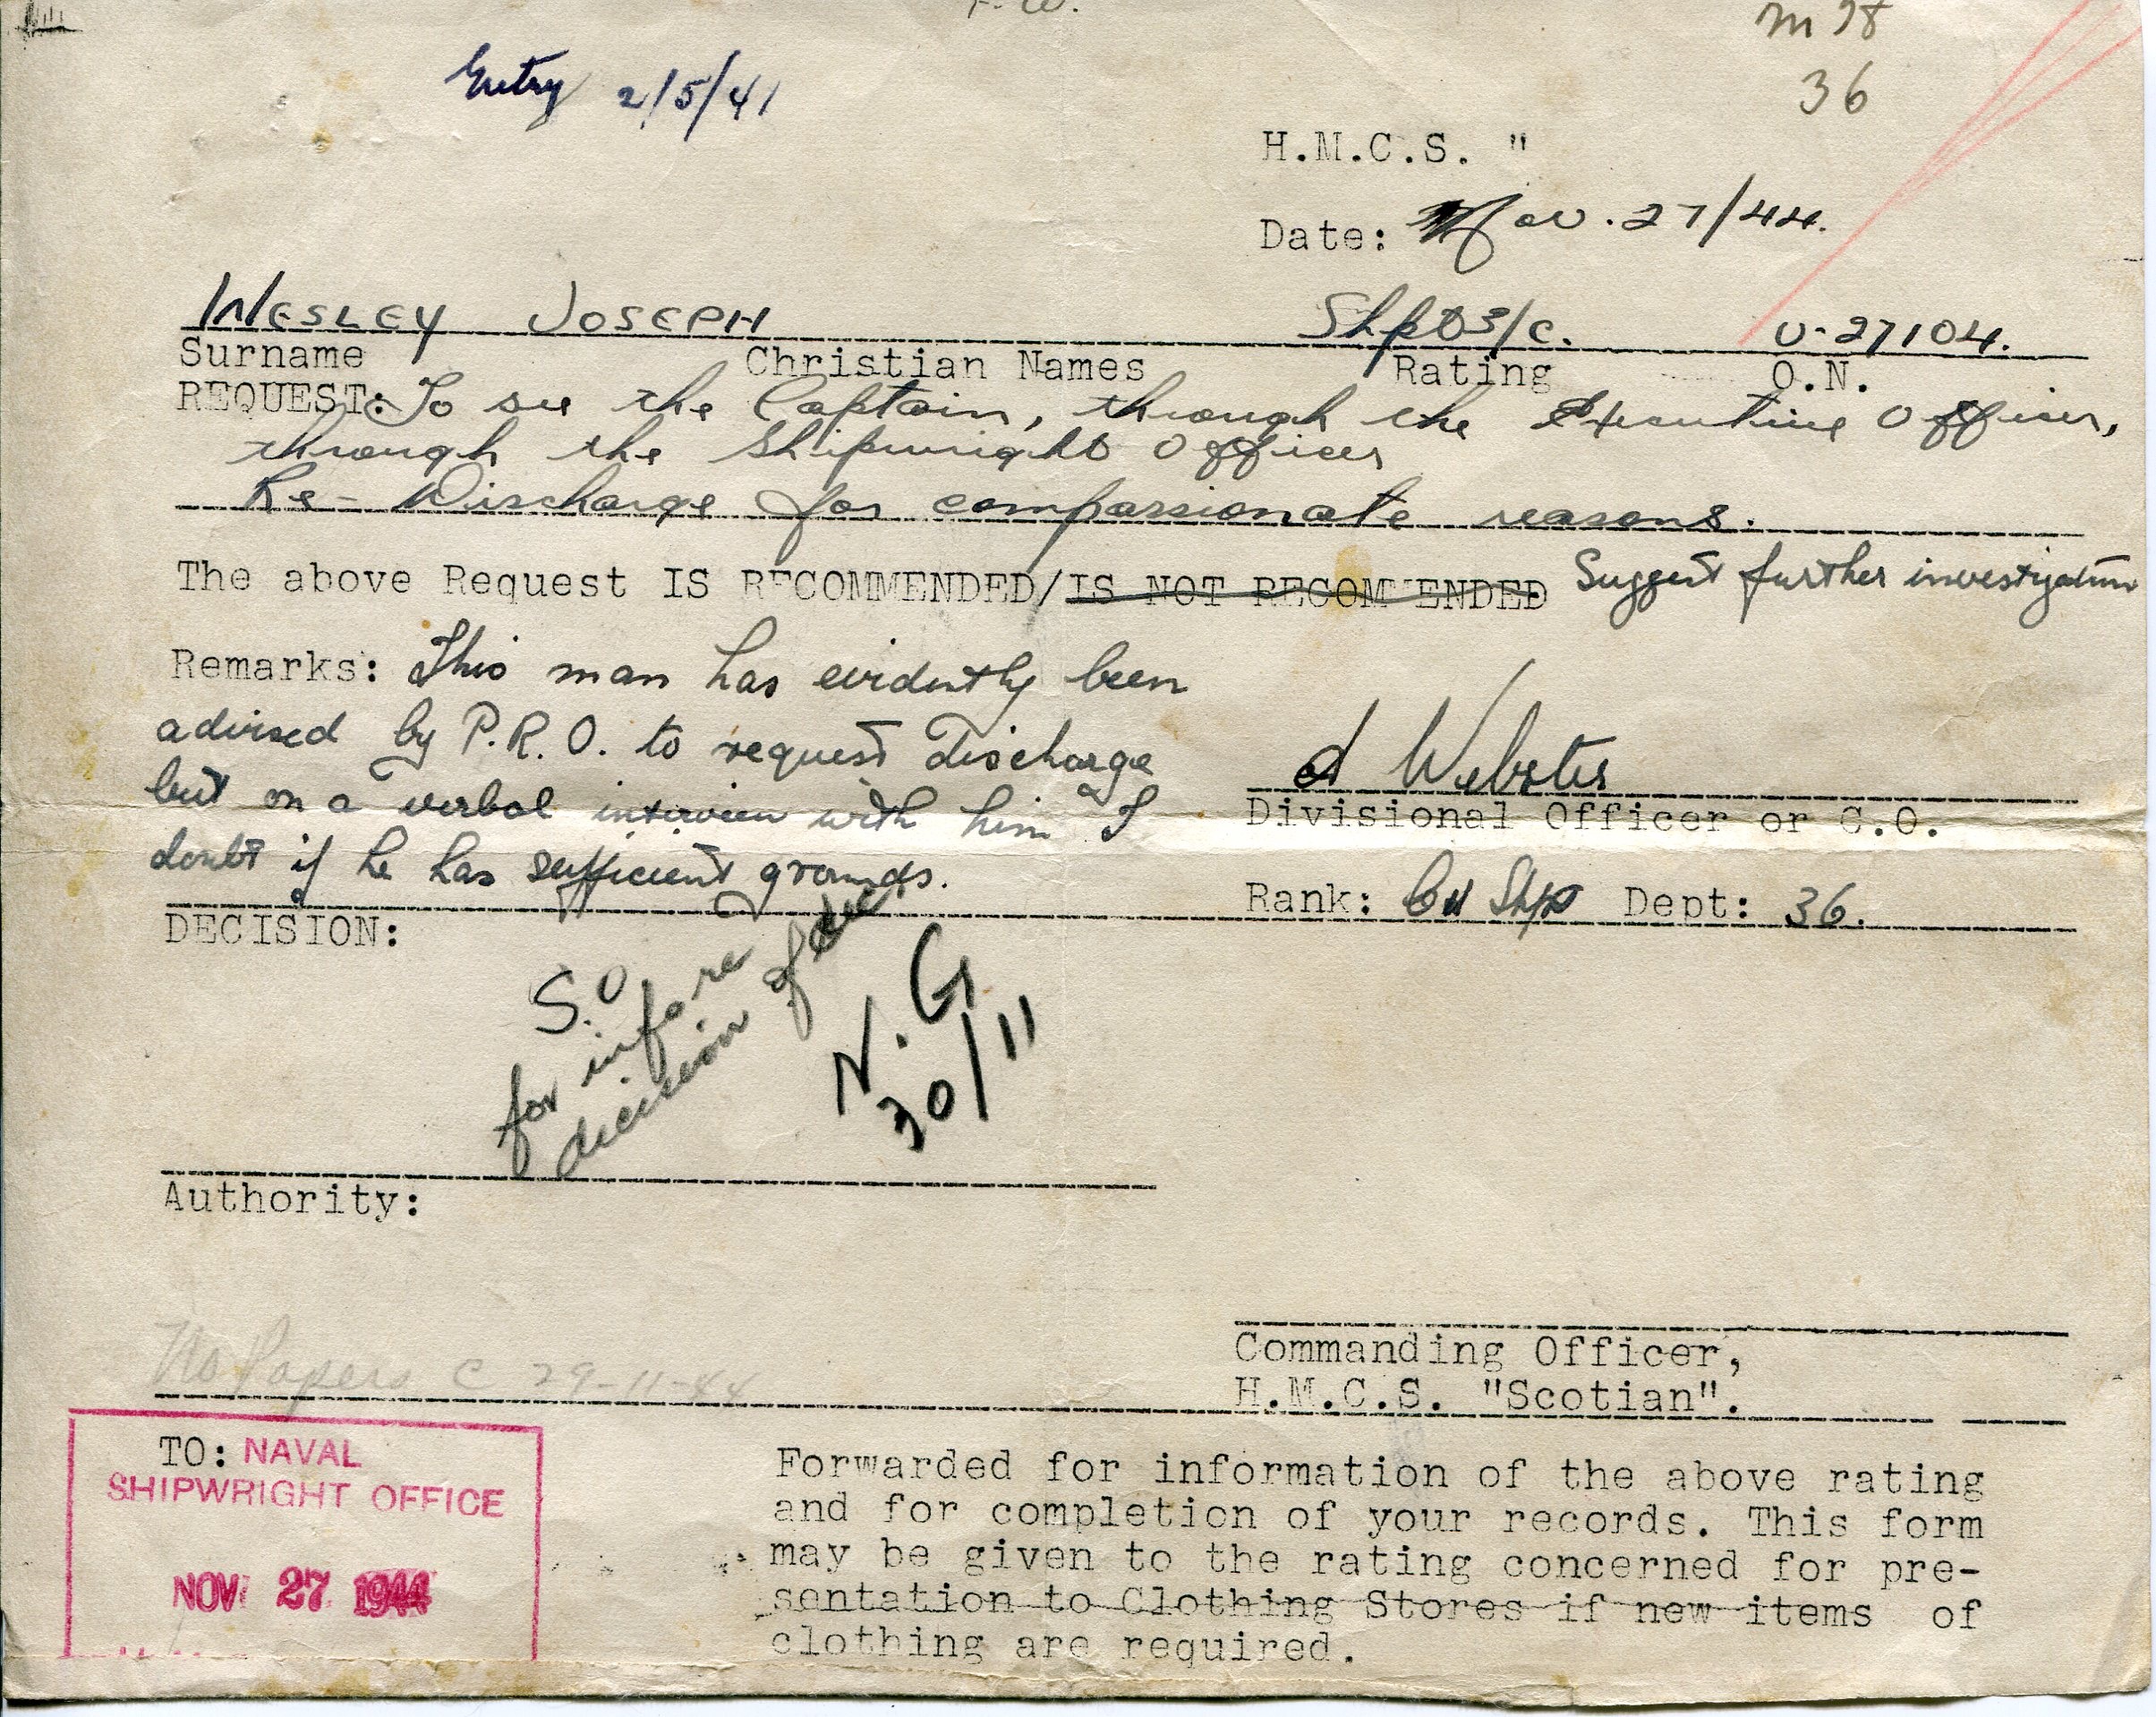 F. W.
M 78
36
Entry 2/5/41
H.M.C.S. "
Date: Nov. 27/44.
WESLEY JOSEPH Shpt 3/c. V-27104.
Surname Christian Names Rating O.N.
REQUEST: To see the Captain, through the Executive Officer,
through the Shipwright Officer
Re- Discharge for compassionate reasons.
The above Request IS RECOMMENDED/IS NOT RECOMMENDED Suggest further investigation
Remarks: This man has evidently been
advised by P.R.O. to request discharge
but on a verbal interview with him I
doubt if he has sufficient grounds.
d Webster
Divisional Officer or C.O.
Rank: Shpt Dept: 36.
DECISION:
S.O
for info re
decision of
N.G
30/11
Authority:
No Papers C 29-11-44
Commanding Officer,
H.M.C.S. "Scotian".
TO: NAVAL
SHIPWRIGHT OFFICE
NOV 27 1944
Forwarded for information of the above rating
and for completion of your records. This form
may be given to the rating concerned for pre-
sentation to Clothing Stores if new items of
clothing are required.